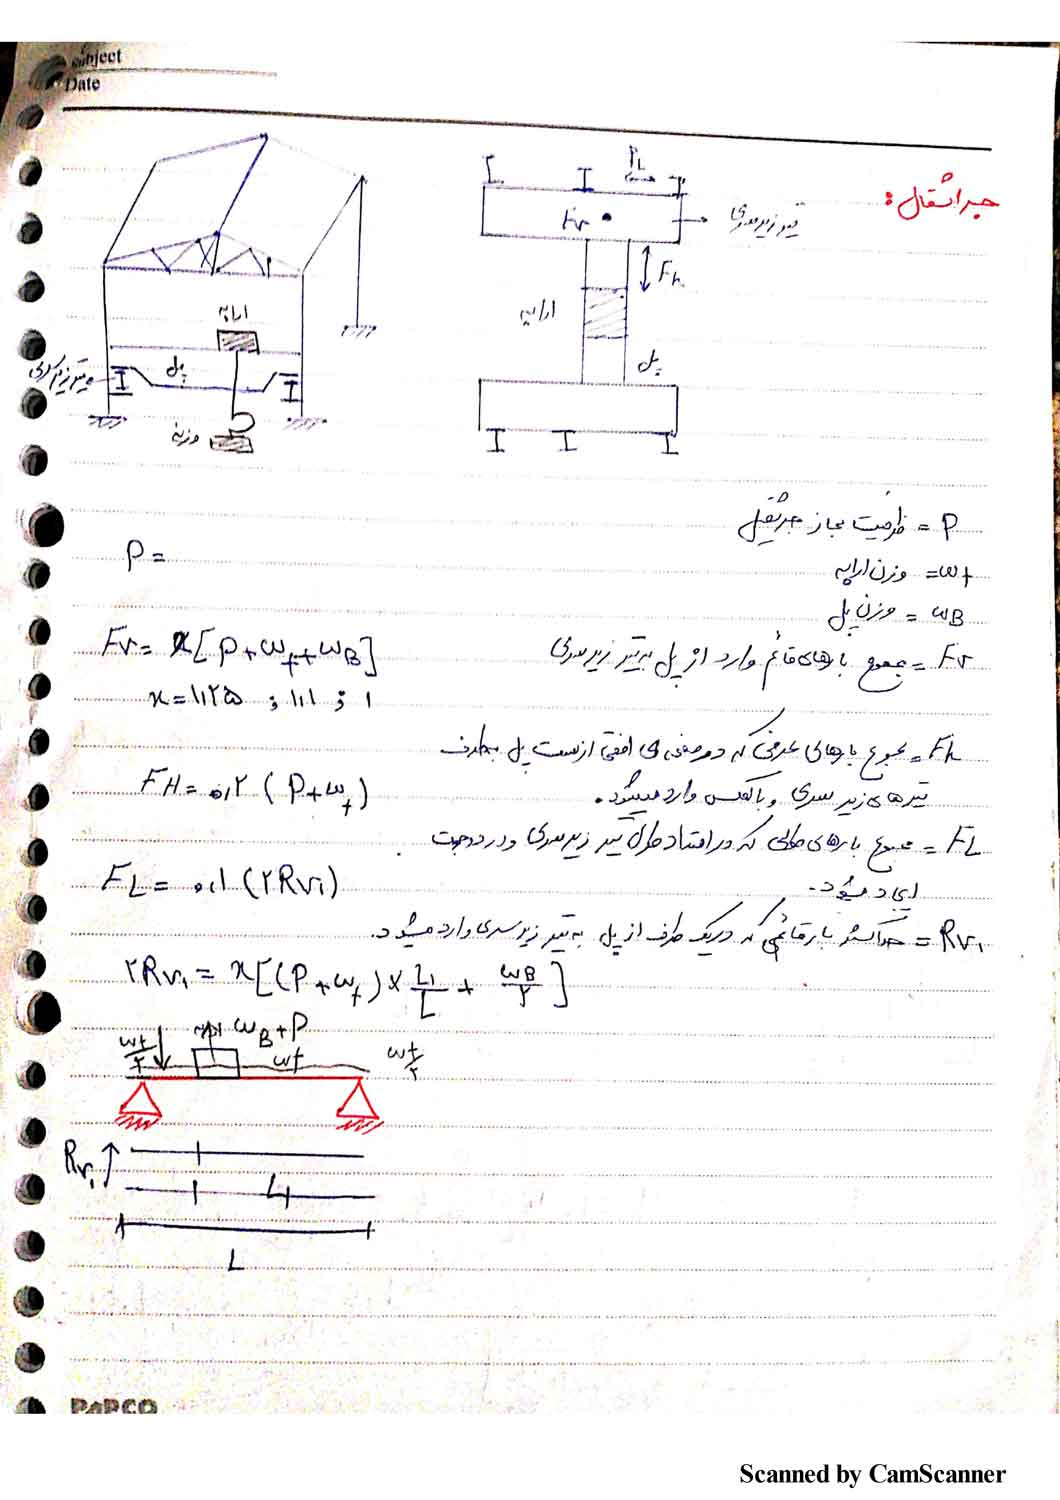 Subject
Date
جراثقال :
تیر زیرسری
FL
Fv
Fh
ارابه
پل
ارابه
پل
وزنه
P = ظرفیت مجاز جرثقیل
P =
wt = وزن ارابه
wB = وزن پل
Fv = مجموع بارهای قائم وارد از پل به تیر زیرسری
Fv = x[P+wt+wB]
x = ۱،۲۵ ; ۱،۱ ; ۱
Fh = مجموع بارهای عرضی که در صفحه ی افقی از سمت پل به طرف
تیرهای زیرسری و بالعکس وارد میشود.
FH = ۰،۲ (P+wt)
FL = مجموع بارهای طولی که در امتداد طول تیر زیرسری و در دو جهت
ایجاد میشود.
FL = ۰،۱ (۲Rv1)
Rv1 = حداکثر بار قائمی که در یک طرف از پل به تیر زیرسری وارد میشود.
۲Rv1 = x[(P+wt) × L1/L + wB/۲]
wt/۲
wB+P
wt
wt/۲
Rv1
L1
L
PAPCO
Scanned by CamScanner